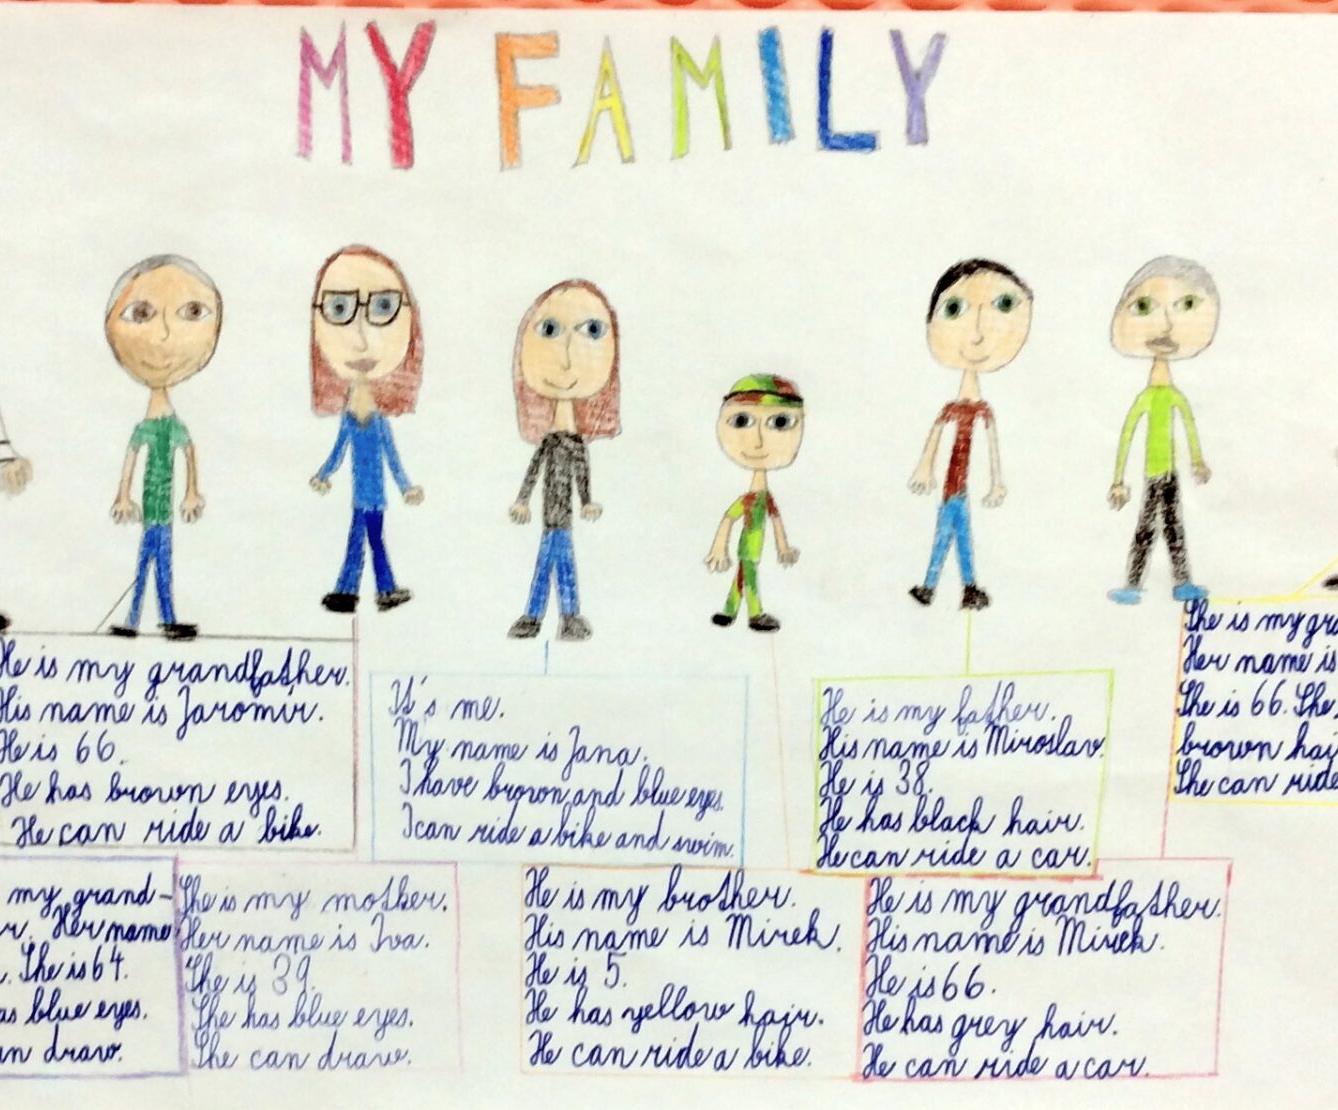 MY FAMILY
He is my grandfather.
His name is Jaromír.
He is 66.
He has brown eyes.
He can ride a bike.
It's me.
My name is Jana.
I have brown and blue eyes.
I can ride a bike and swim.
He is my father.
His name is Miroslav.
He is 38.
He has black hair.
He can ride a car.
She is my
Her name is
She is 66. She
brown
She can ride
my grand-
Her name
She is 64.
blue eyes.
draw.
She is my mother.
Her name is Iva.
She is 39.
She has blue eyes.
She can draw.
He is my brother.
His name is Mirek.
He is 5.
He has yellow hair.
He can ride a bike.
He is my grandfather.
His name is Mirek.
He is 66.
He has grey hair.
He can ride a car.